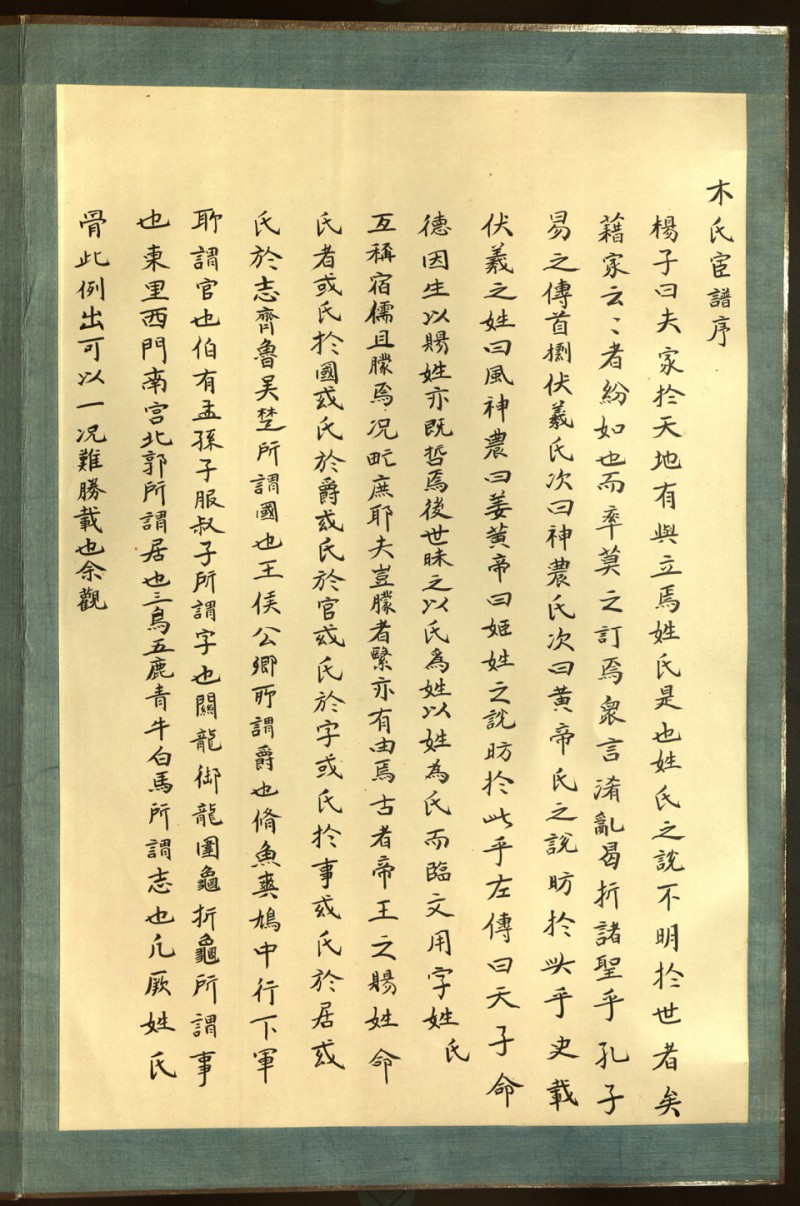 木氏宦譜序
楊子曰夫家於天地有與立焉姓氏是也姓氏之說不明於世者矣
藉家云〻者紛如也而率莫之訂焉衆言淆亂曷折諸聖乎孔子
易之傳首揭伏羲氏次曰神農氏次曰黃帝氏之說昉於此乎史載
伏羲之姓曰風神農曰姜黃帝曰姬姓之說昉於此乎左傳曰天子命
德因生以賜姓亦既哲焉後世昧之以氏為姓以姓為氏而臨文用字姓氏
互稱宿儒且朦焉况甿庶耶夫豈朦者繄亦有由焉古者帝王之賜姓命
氏者或氏於國或氏於爵或氏於官或氏於字或氏於事或氏於居或
氏於志齊魯吴楚所謂國也王侯公卿所謂爵也脩魚爽鳩中行下軍
所謂官也伯有孟孫子服叔子所謂字也關龍御龍圉龜折龜所謂事
也東里西門南宮北郭所謂居也三烏五鹿青牛白馬所謂志也凡厥姓氏
骨此例出可以一况難勝載也余觀